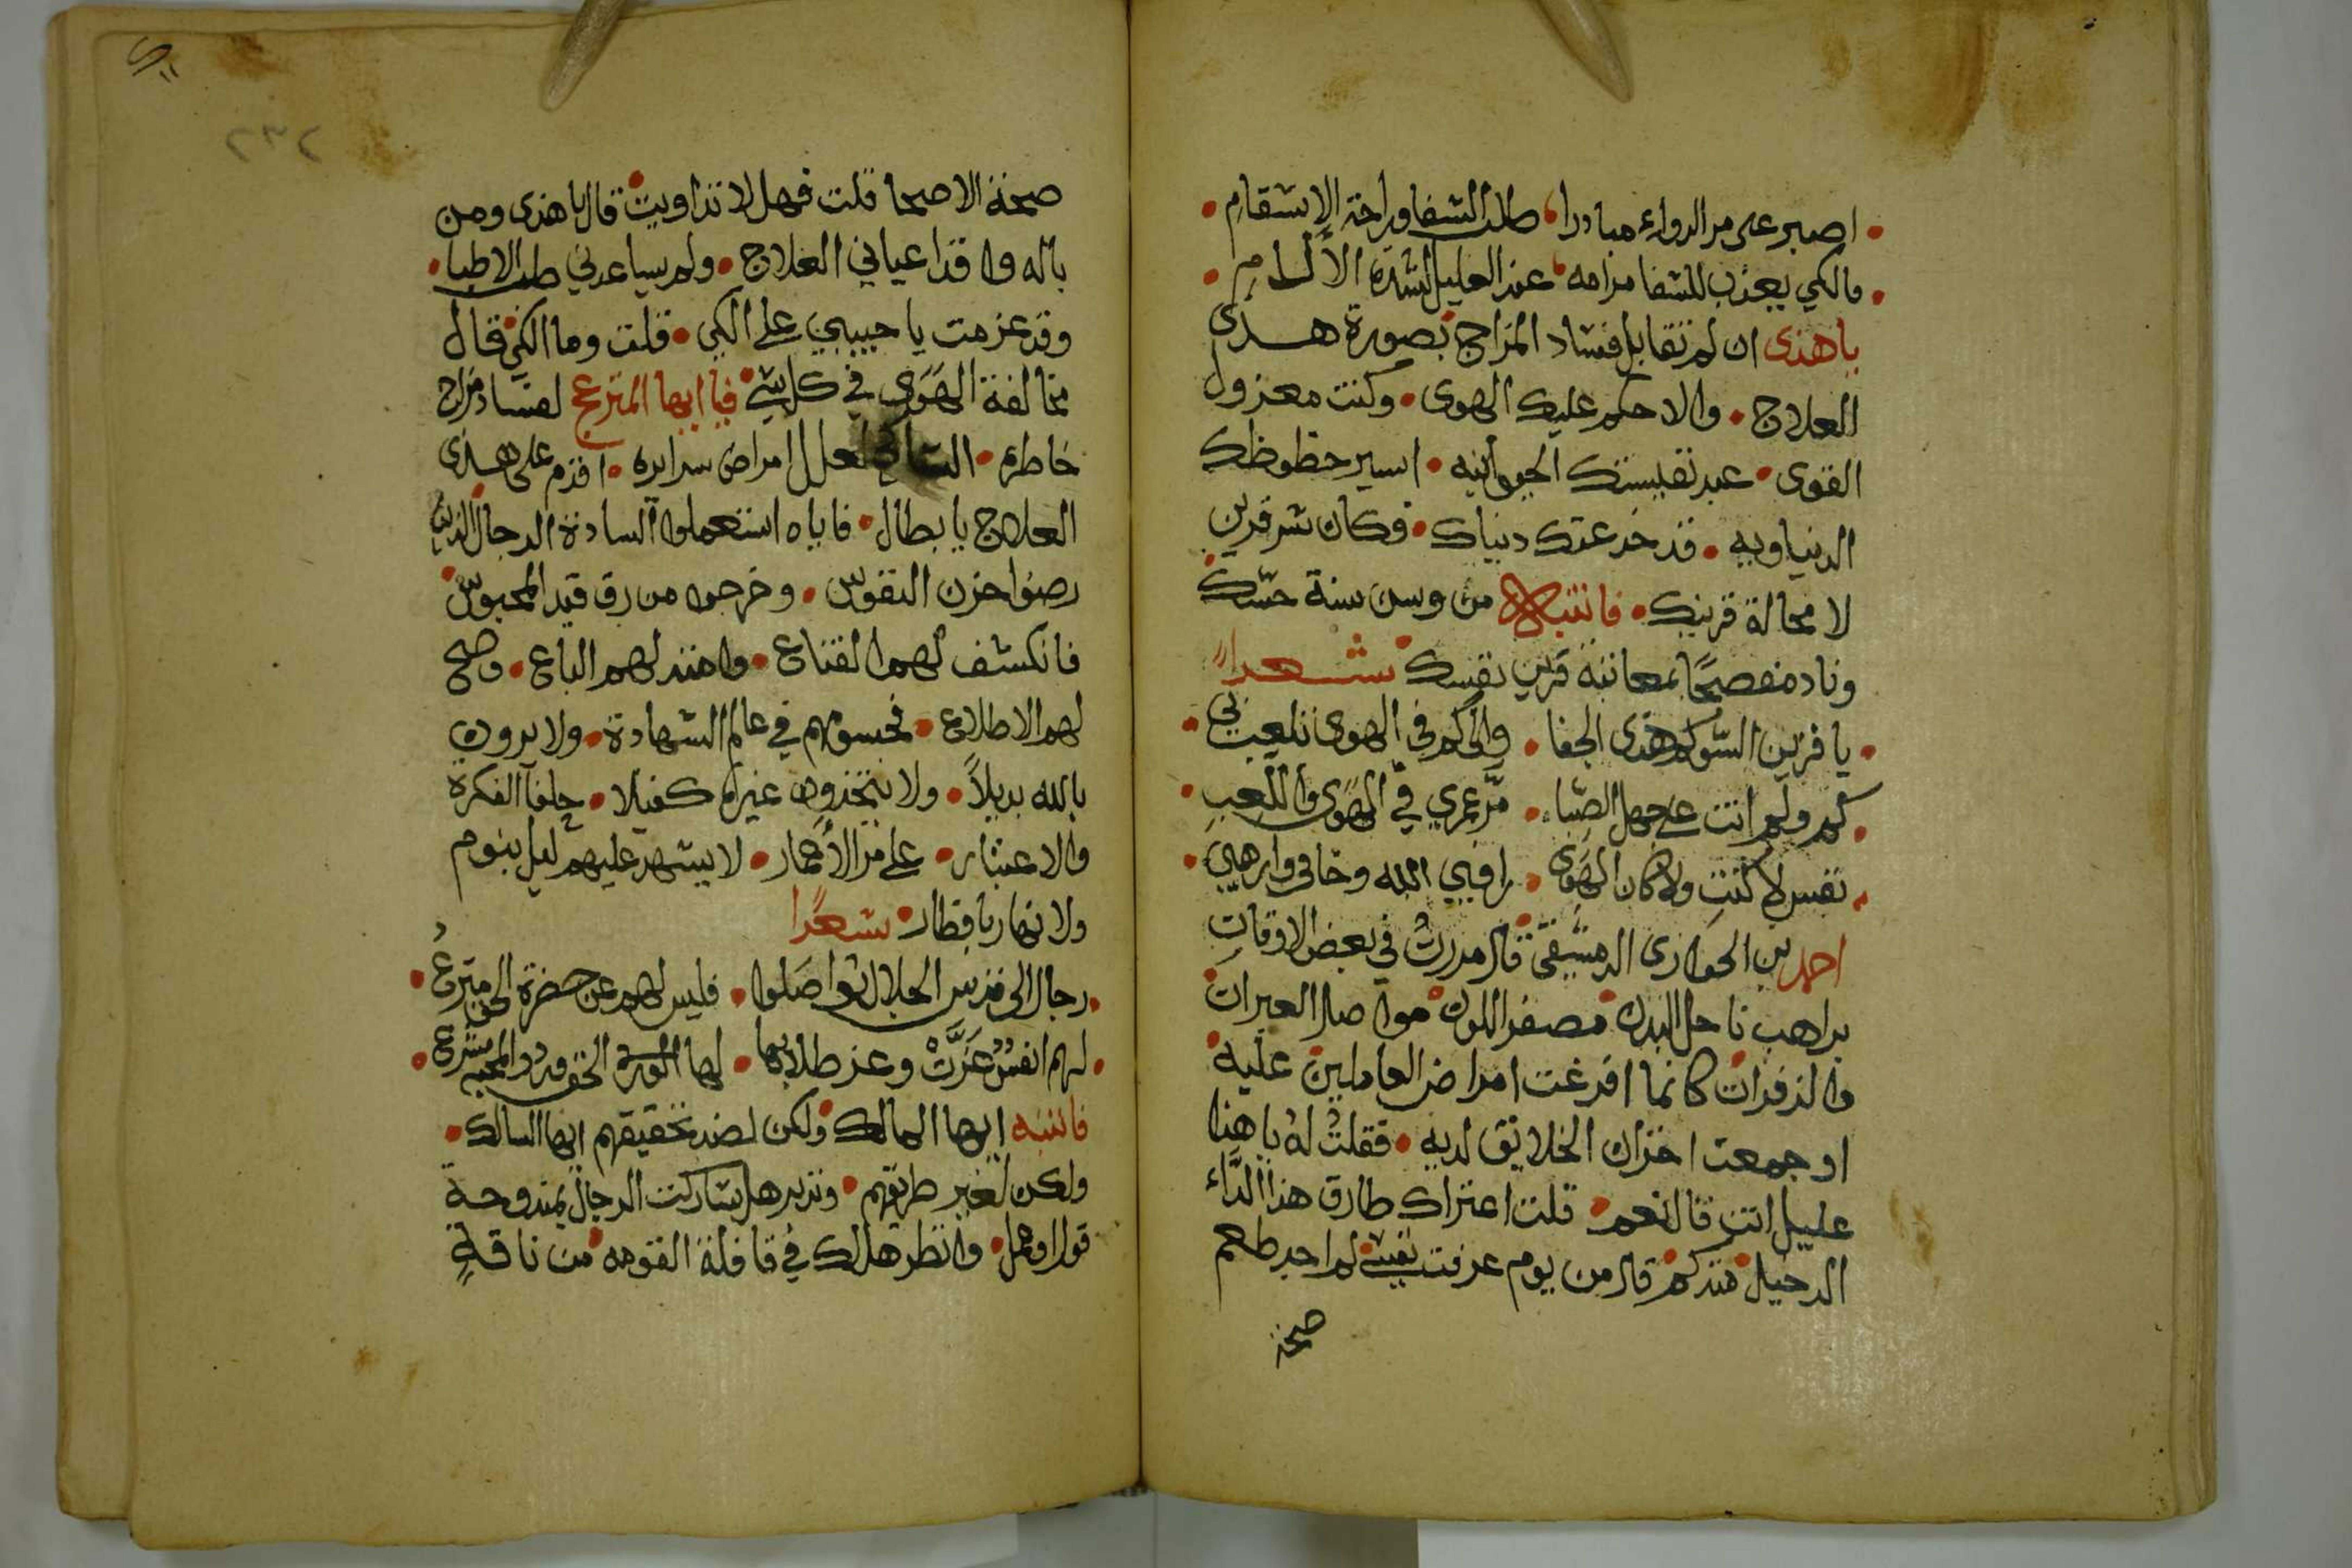 • اصبر على مر الدواء مبادرا، طلب الشفا وراحة الاسقام •
• فالكي يعذب للشفا مرامه، عند العليل لشدة الآلام •
ياهذى ان لم تقابل فساد المزاج بصورة هذى
العلاج • والا حكم عليك الهوى • وكنت معزول
القوى • عبد نفيستك الحيوانيه • اسير حظوظك
الدنياويه • قد خدعتك دنياك • فكان شر قرين
لا محالة قرينك • فانتبه من وسن سنة حسك
وناد مفصحًا بمعاتبة قرين نفسك • شعرا
• يا قرين السو كم هذى الجفا • والى كم فى الهوى تلعب بى •
• كم وكم انت على جهل الصبا • مر عمري في الهَوَى واللعب •
• نفس لا كنتِ ولا كان الهَوَى • راقبي الله وخافى وارهبي •
احمد بن الحوارى الدمشقى قال مررتُ في بعض الاوقات
براهب ناحل البدن • مصفر اللون • مواصل العبرات
والزفرات • كانما افرغت امراض العاملين عليه •
او جمعت احزان الخلايق لديه • فقلتُ لهُ ياهذا
عليل انت قال نعم • قلت اعتراك طارق هذا الدَّاء
الدخيل • مند كم • قال من يوم عرفت نفسي • لم اجد طعم
صحة
٢٣٢
صحة الاصحا قلت فهل لا تداويت • قال ياهذى ومن
باله وا قد اعياني العلاج • ولم يساعدني طب الاطبا •
وقد عزمت يا حبيبي على الكي • قلت وما الكي • قال
مخالفة الهَوَى في كل شي • فيا ايها المترعج لفساد مزاج
خاطره • الشاكى لعلل امراض سرايره • اقدم على هذى
العلاج يا بطال • فاياه استعملوا السادة الرجال الذين
رضوا حزن النفوس • وخرجوا من رق قيد المحبوس •
فانكشف لهم القناع • وامتد لهم الباع • وصح
لهم الاطلاع • فجسومهم في عالم الشهادة • ولا يرون
بالله بديلاً • ولا يتخذون غيره كفيلا • حلفا الفكرة
والاعتبار • على مر الأعمار • لا يشهد عليهم ليل بنوم
ولا نهار بافطار • شعرًا
• رجال الى قدس الجلال تواصَلوا • فليس لهم عن حضرة الحق مترعُ •
• لهم انفسٌ عَزَّتْ وعز طلابها • لها الحق ورد والمحبه مشرع •
فانتبه ايها الهالك • ولكن لضد تحقيقهم ايها السالك •
ولكن لغير طريقهم • وتدبر هل شاركت الرجال بمندوحة
قول او عمل • وانظر هل لك في قافلة القوم • من ناقةٍ